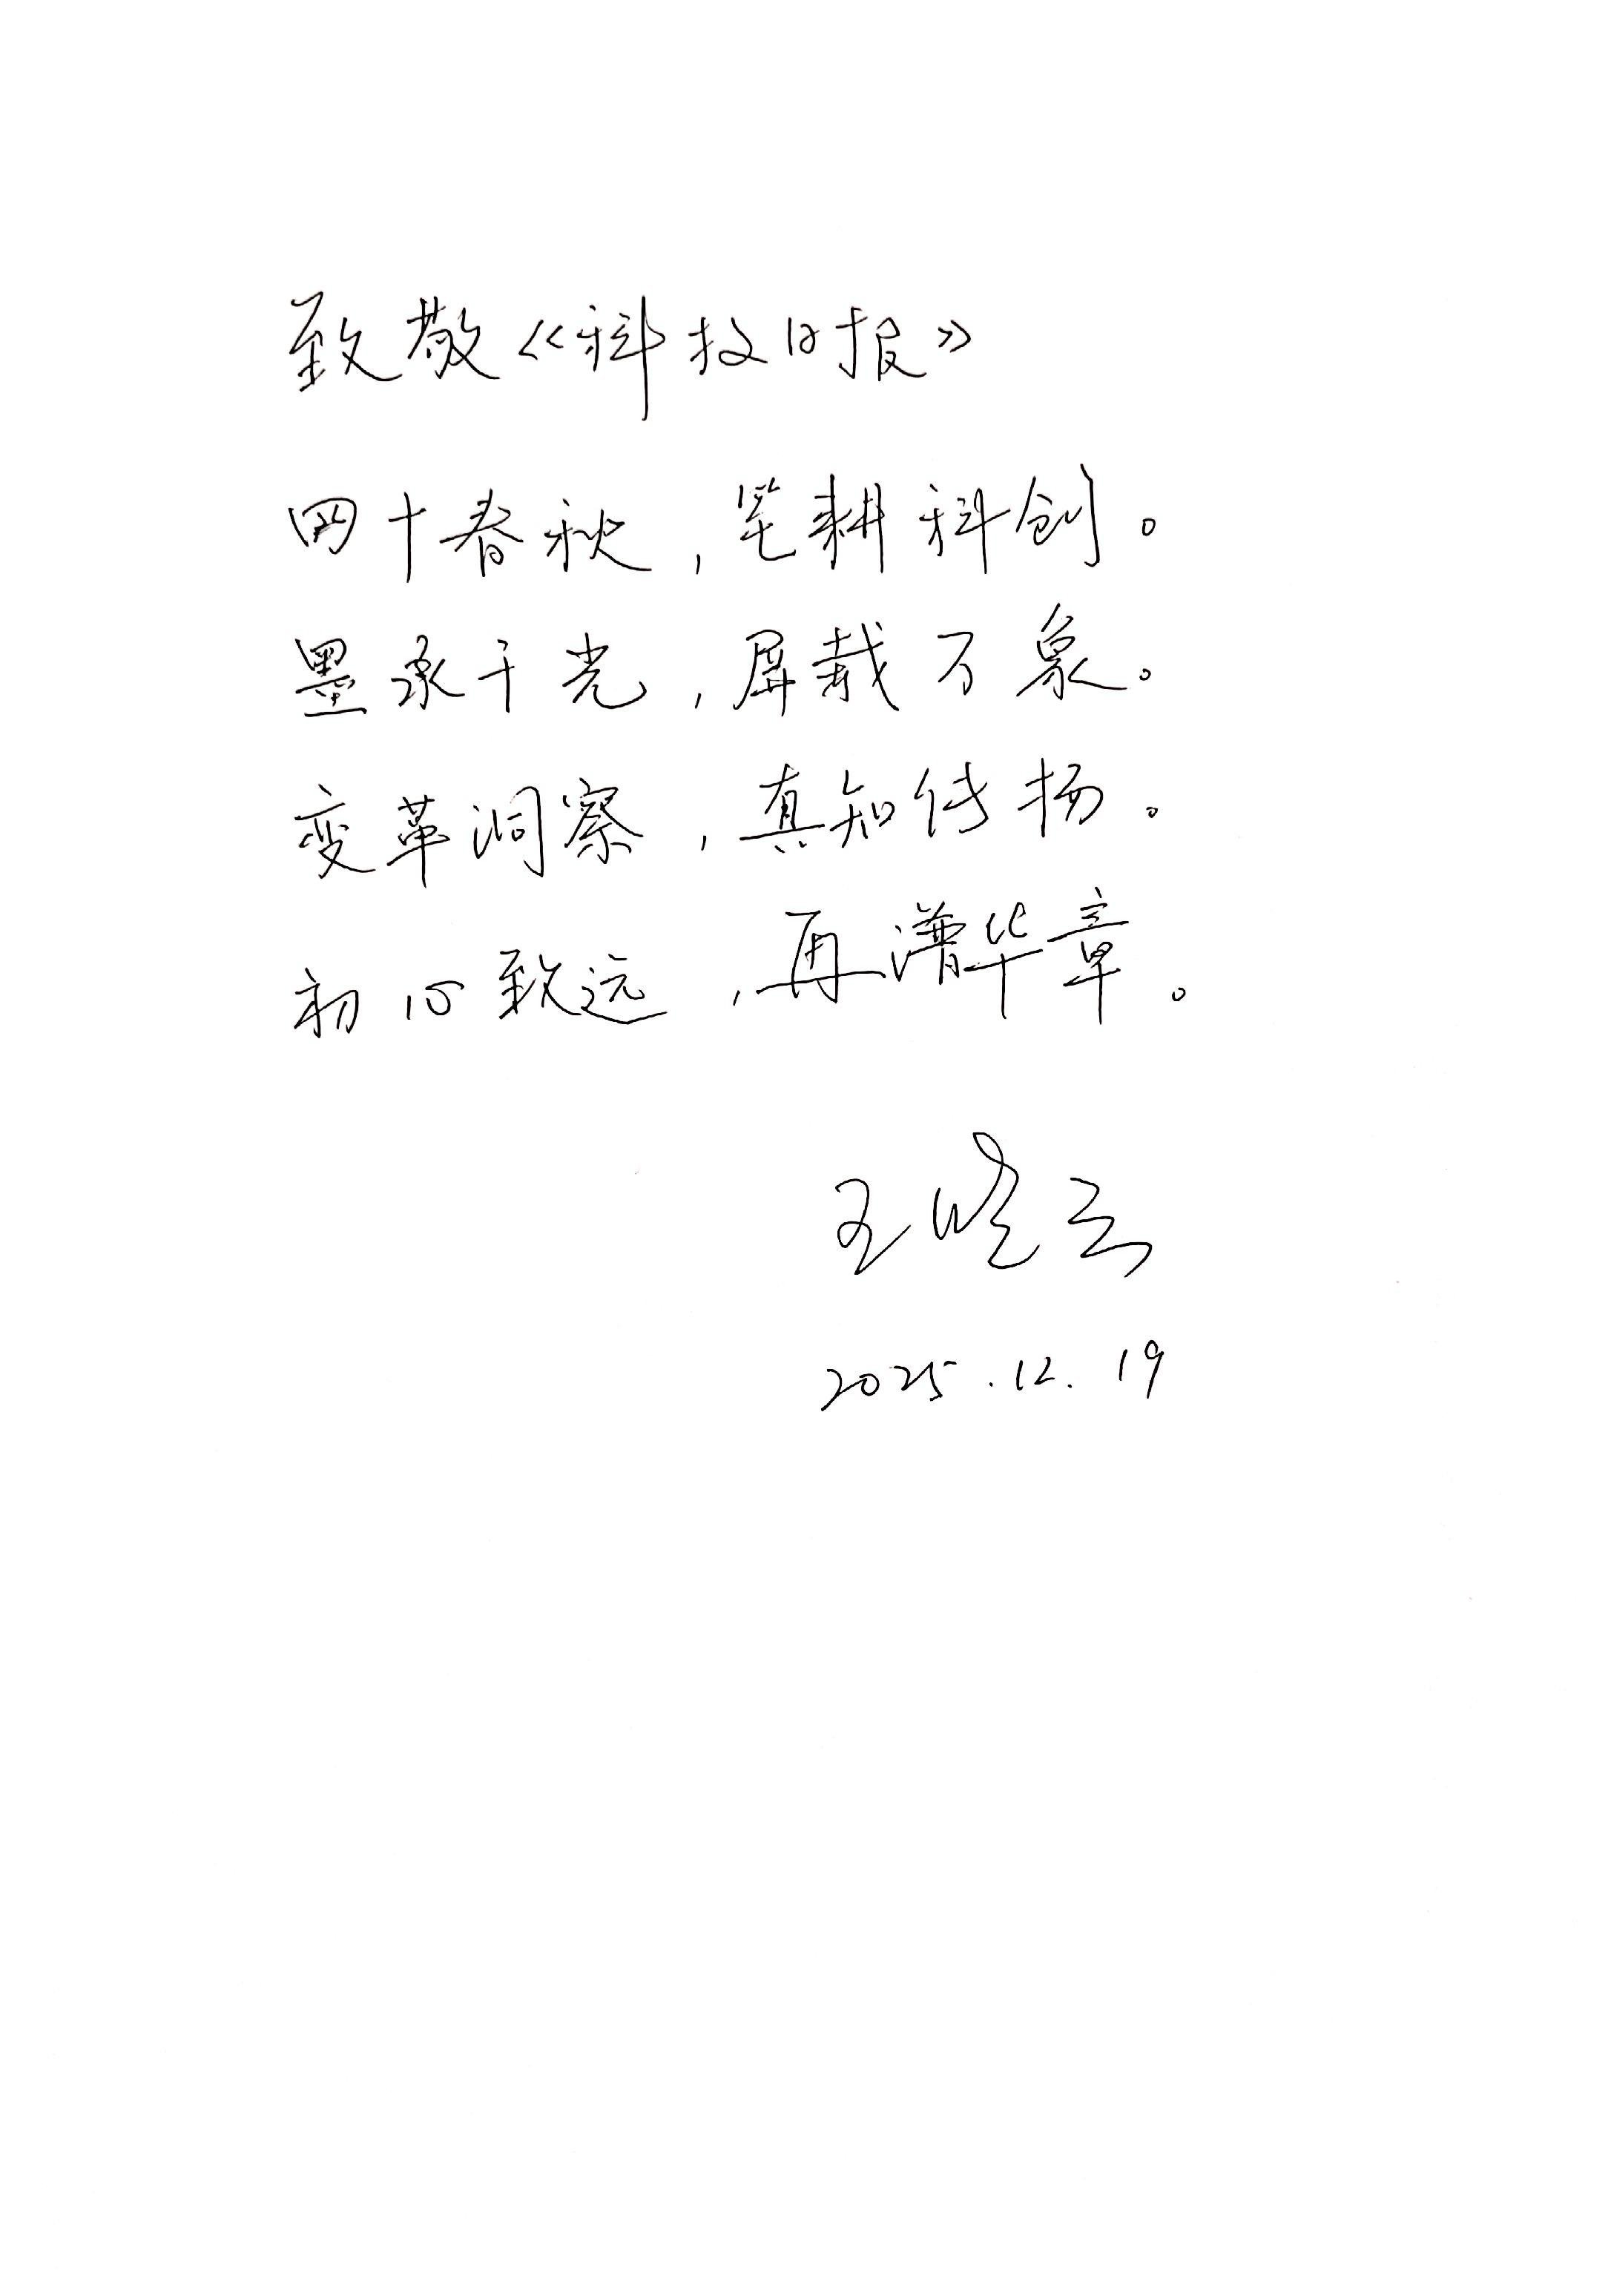 致敬《科技日报》
四十春秋，笔耕科创。
墨承千光，屏载万象。
变革洞察，真知传扬。
初心致远，再谱华章。
王晓云
2025.12.19